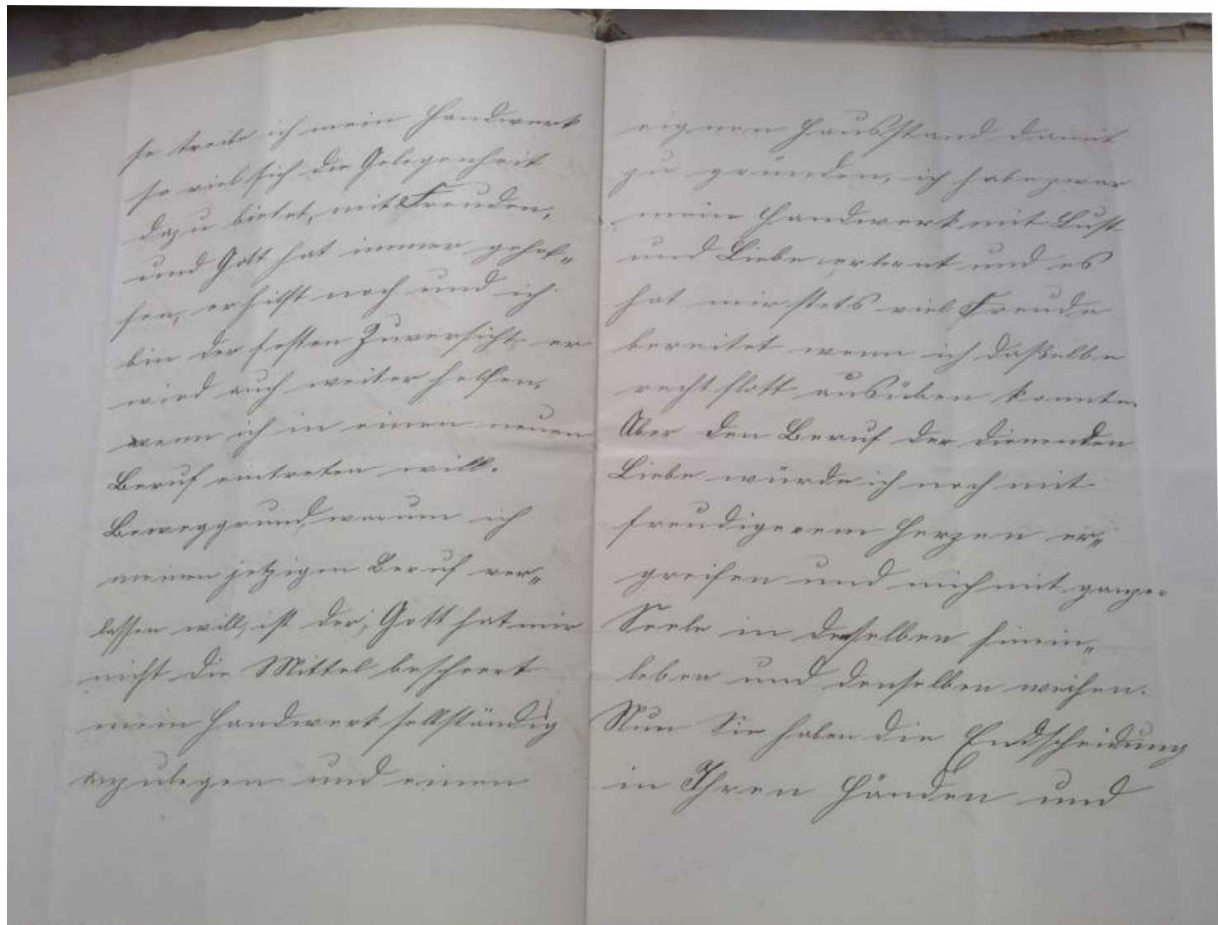 so treibe ich mein Handwerk
so viel sich die Gelegenheit
dazu bietet, mit Freuden,
und Gott hat immer gehol„
fen, er hilft noch und ich
bin der festen Zuversicht er
wird auch weiter helfen,
wenn ich in einen neuen
Beruf eintreten will.
Beweggrund warum ich
meinen jetzigen Beruf ver„
lassen will, ist der; Gott hat mir
nicht die Mittel bescheert
mein Handwerk selbständig
anzulegen und einen
eignen Hausstand damit
zu gründen, ich habe zwar
mein Handwerk mit Lust
und Liebe erlernt und es
hat mir stets viel Freude
bereitet wenn ich daßelbe
recht flott ausüben konnte.
Aber den Beruf der dienenden
Liebe würde ich noch mit
freudigerem Herzen er„
greifen und mich mit ganzer
Seele in denselben hinein„
leben und denselben weihen.
Nun Sie haben die Endscheidung
in Ihren Händen und